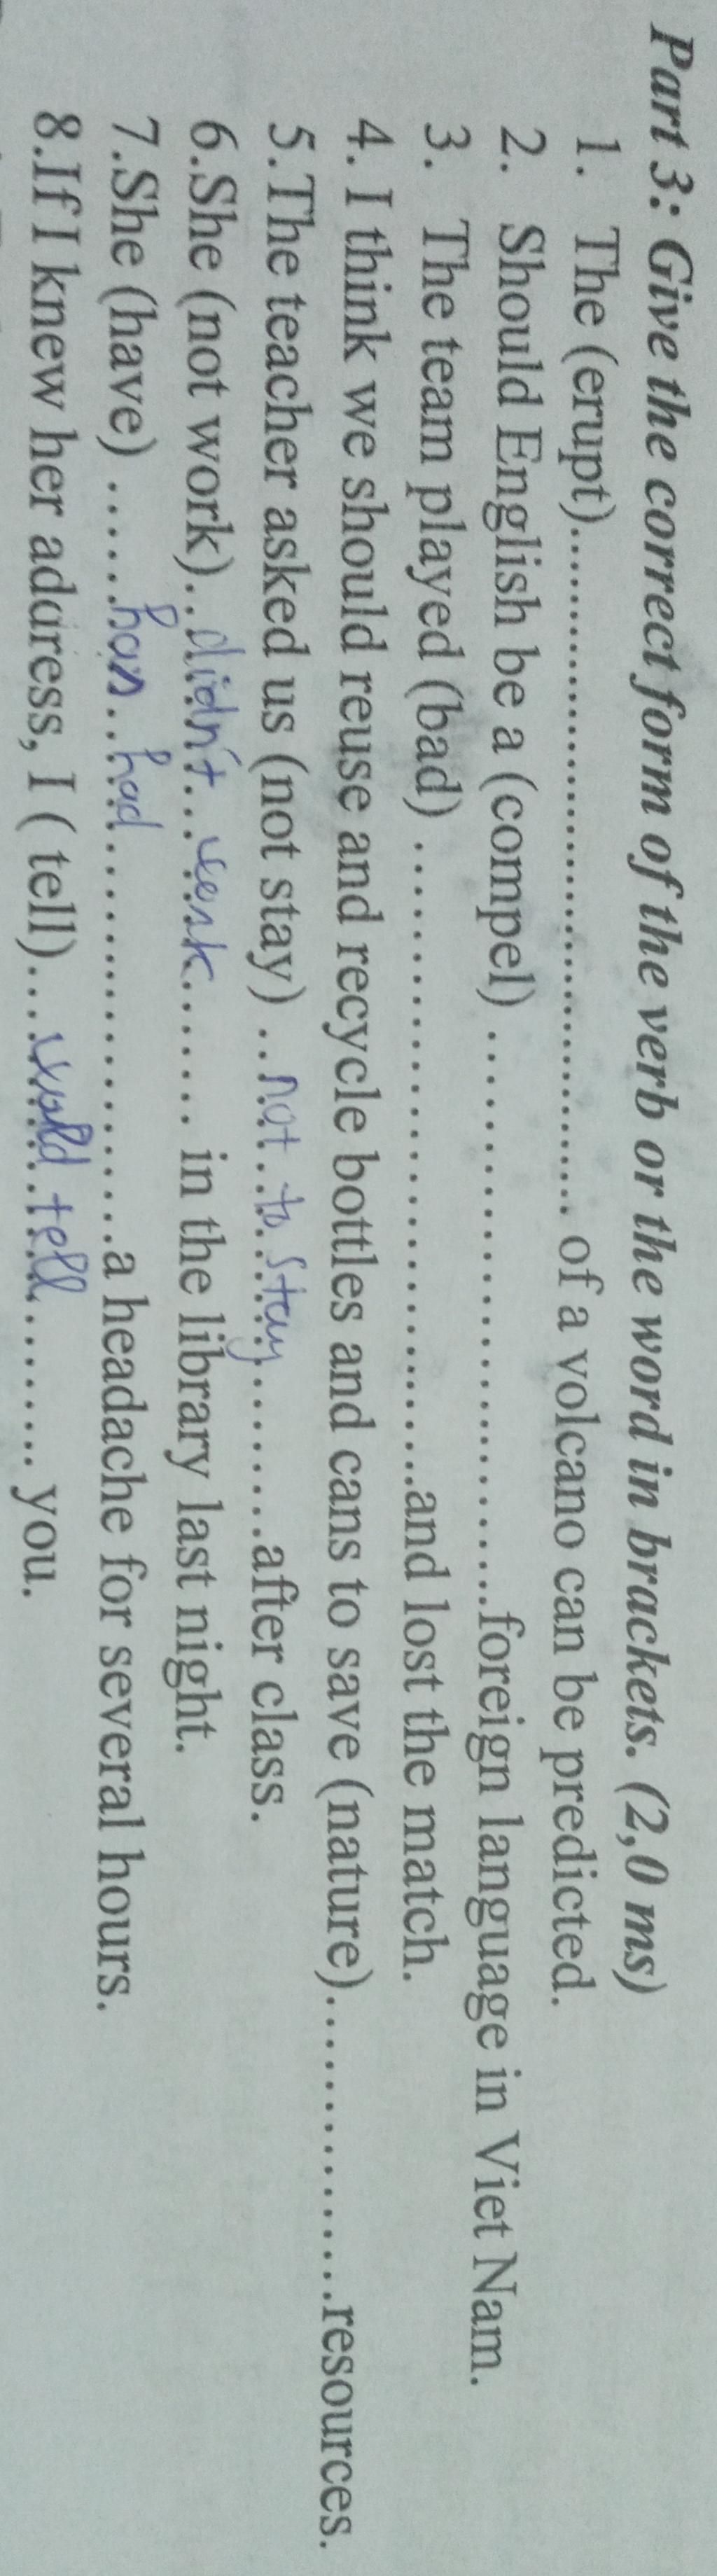 Part 3: Give the correct form of the verb or the word in brackets. (2,0 ms)
1. The (erupt)........................................ of a volcano can be predicted.
2. Should English be a (compel) ..................................foreign language in Viet Nam.
3. The team played (bad) ......................................and lost the match.
4. I think we should reuse and recycle bottles and cans to save (nature)...................resources.
5.The teacher asked us (not stay) ..not to stay........after class.
6.She (not work)..didn't work....... in the library last night.
7.She (have) ......has had.....................a headache for several hours.
8.If I knew her address, I ( tell)....would tell......... you.